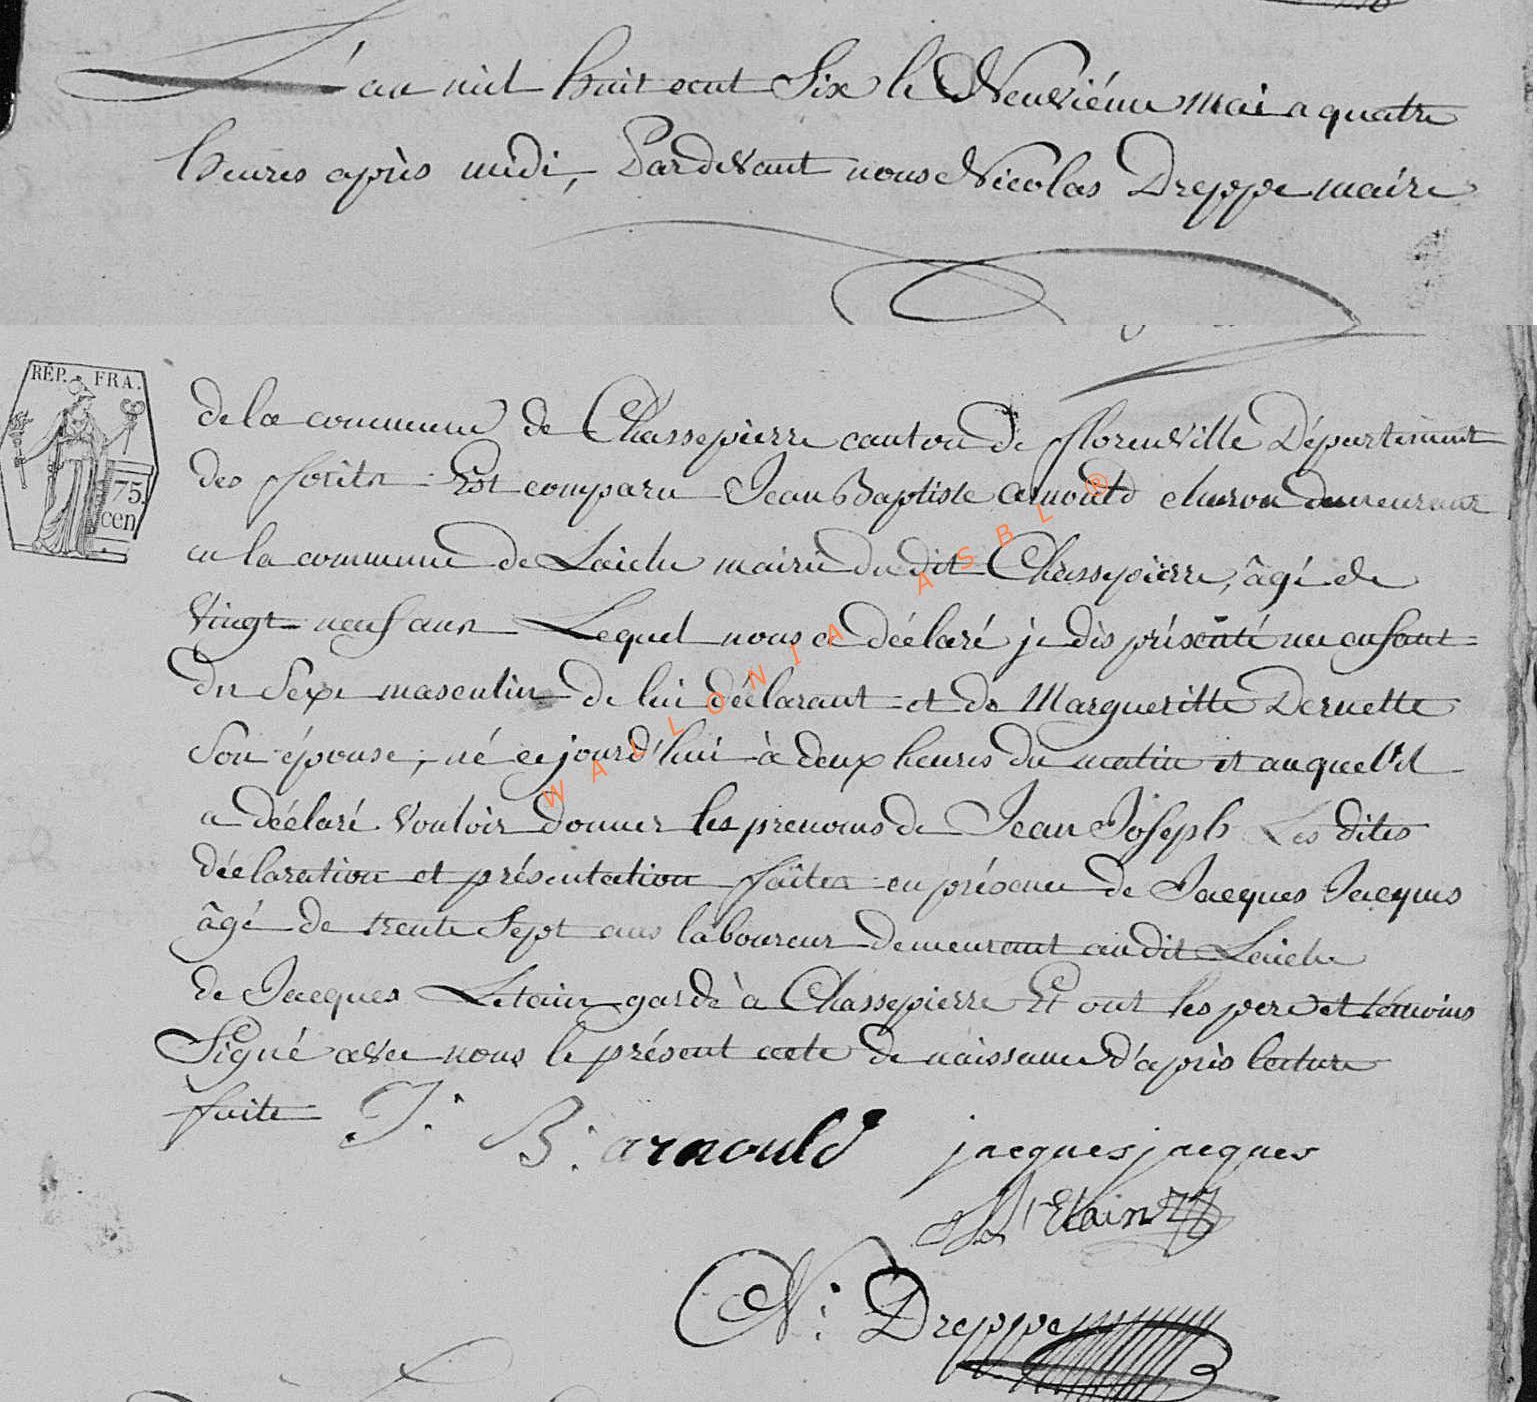 L'an mil huit cent Six le Neuviéme mai a quatre
heures après midi, Pardevant nous Nicolas Dreppe maire
RÉP. FRA.
75.
cen
de la commune de Chassepierre canton de florenville Département
des forêts Est comparu Jean Baptiste arnould charon demeurant
en la commune de Laiche mairie du dit Chassepierre, âgé de
Vingt neuf ans Lequel nous a déclaré je dis présenté un enfant
du Sexe masculin de lui déclarant et de Margueritte Dernette
Son épouse, né cejourd'hui à deux heures du matin et auquel il
a déclaré Vouloir donner les prenoms de Jean Joseph Les dites
déclaration et présentation faites en présence de Jacques Jacques
âgé de trente Sept ans laboureur demeurant audit Laiche
de Jacques Letain garde à Chassepierre Et ont les pere et témoins
Signé avec nous le présent acte de naissance d'après lecture
faite J. B. arnould jacques jacques
Etain
N. Dreppe
WALLONIA ASBL ®